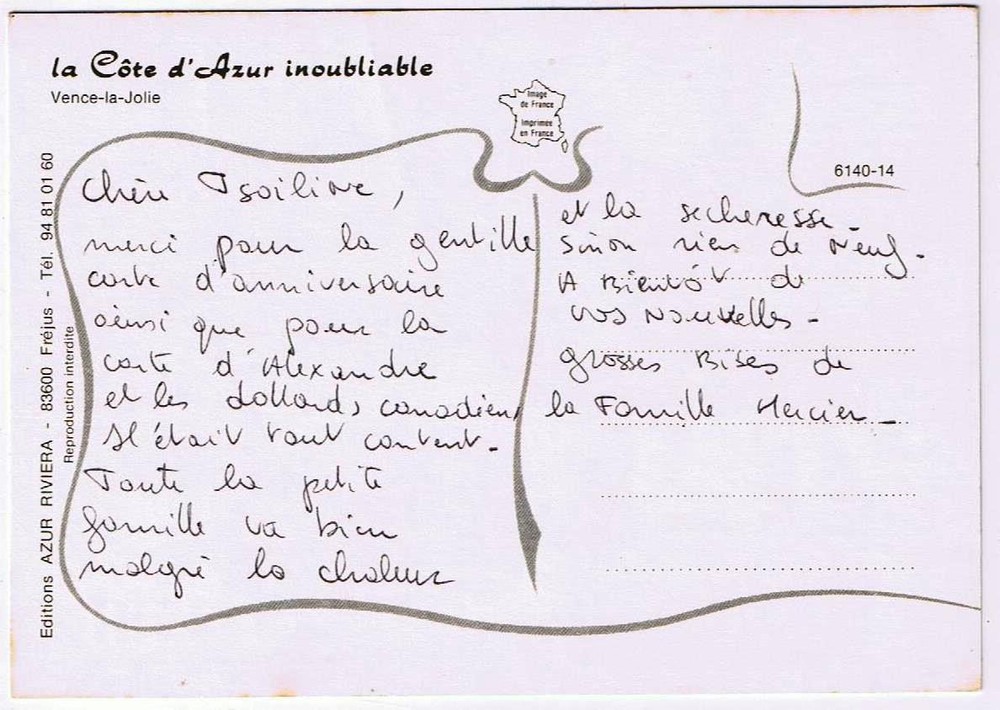 la Côte d'Azur inoubliable
Vence-la-Jolie
Image
de France
Imprimée
en France
6140-14
Editions AZUR RIVIERA - 83600 Fréjus - Tél. 94 81 01 60
Reproduction interdite
Chère Tsoiline,
merci pour la gentille
carte d'anniversaire
ainsi que pour la
carte d'Alexandre
et les dollards canadiens
Il était tout content.
Toute la petite
famille va bien
malgré la chaleur
et la secheresse.
Sinon rien de Neuf.
A Bientôt de
vos Nouvelles.
grosses Bises de
la Famille Mercier.